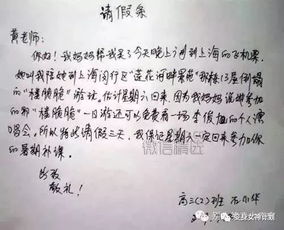 请假条
黄老师：
你好！我妈妈帮我买了今天晚上厦门到上海的飞机票，
她叫我陪她到上海闵行区"莲花河畔景苑"那栋13层倒塌
的"楼脆脆"游玩。估计星期六回来，因为我妈妈说参加
的那"楼脆脆"一日游还可以免费看一场李俊旭的个人演
唱会，所以特此请假三天，我保证星期六一定回来参加以后
的暑期补课。
此致
敬礼！
高三(2)班
微信精选
变身女神计划